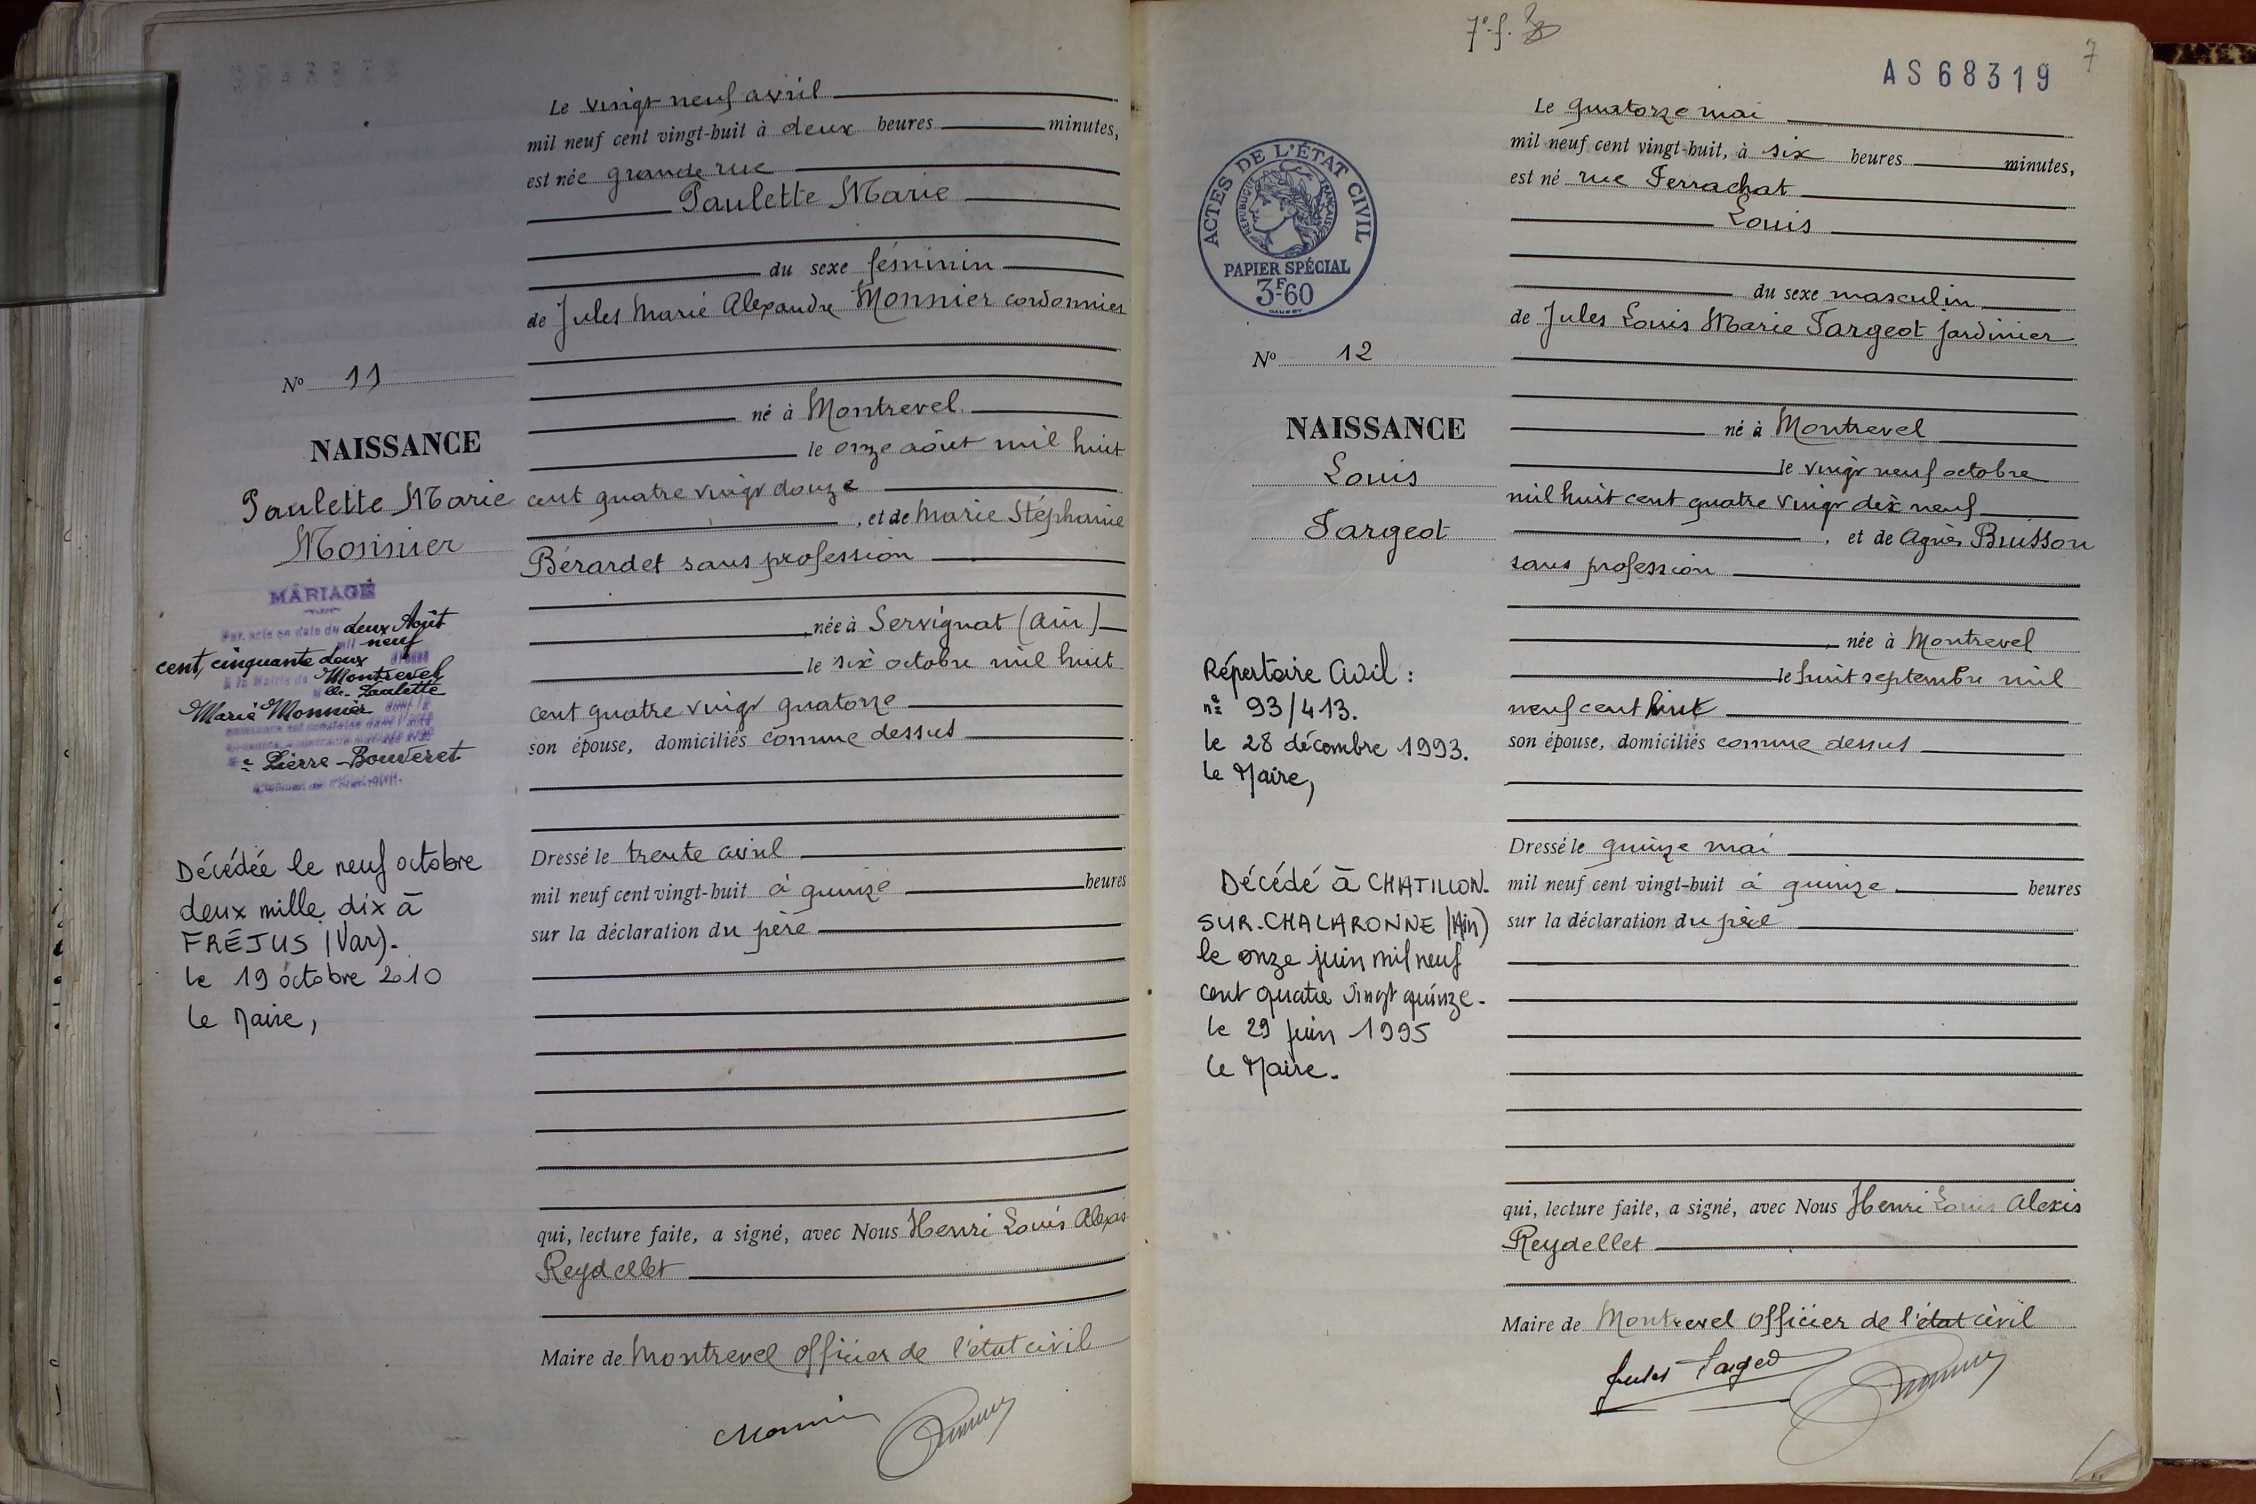 Le vingt neuf avril
mil neuf cent vingt-huit à deux heures minutes,
est née grande rue
Paulette Marie
du sexe féminin
de Jules Marie Alexandre Monnier cordonnier
né à Montrevel
le onze août mil huit
cent quatre vingt douze
, et de Marie Stéphanie
Bérardet sans profession
née à Servignat (Ain)
le six octobre mil huit
cent quatre vingt quatorze
son épouse, domiciliés comme dessus
Dressé le trente avril
mil neuf cent vingt-huit à quinze heures
sur la déclaration du père
qui, lecture faite, a signé, avec Nous Henri Louis Alexis
Reydellet
Maire de Montrevel officier de l'état civil
Monnier
No 11
NAISSANCE
Paulette Marie
Monnier
MARIAGE
Par acte en date du deux Août
mil neuf
cent, cinquante deux
à la Mairie de Montrevel
Paulette
Marie Monnier
Pierre Bouveret
Décédée le neuf octobre
deux mille dix à
FRÉJUS (Var).
le 19 octobre 2010
le Maire,
7
AS68319
ACTES DE L'ÉTAT CIVIL
RÉPUBLIQUE FRANÇAISE
PAPIER SPÉCIAL
3F60
No 12
NAISSANCE
Louis
Fargeot
Répertoire Civil :
no 93/413.
le 28 décembre 1993.
le Maire,
Décédé à CHATILLON-
SUR-CHALARONNE (Ain)
le onze juin mil neuf
cent quatre vingt quinze.
le 29 juin 1995
le Maire.
Le quatorze mai
mil neuf cent vingt-huit, à six heures minutes,
est né rue Ferrachat
Louis
du sexe masculin
de Jules Louis Marie Fargeot jardinier
né à Montrevel
le vingt neuf octobre
mil huit cent quatre vingt dix neuf
, et de Agnès Buisson
sans profession
née à Montrevel
le huit septembre mil
neuf cent huit
son épouse, domiciliés comme dessus
Dressé le quinze mai
mil neuf cent vingt-huit à quinze heures
sur la déclaration du père
qui, lecture faite, a signé, avec Nous Henri Louis Alexis
Reydellet
Maire de Montrevel officier de l'état civil
Jules Fargeot